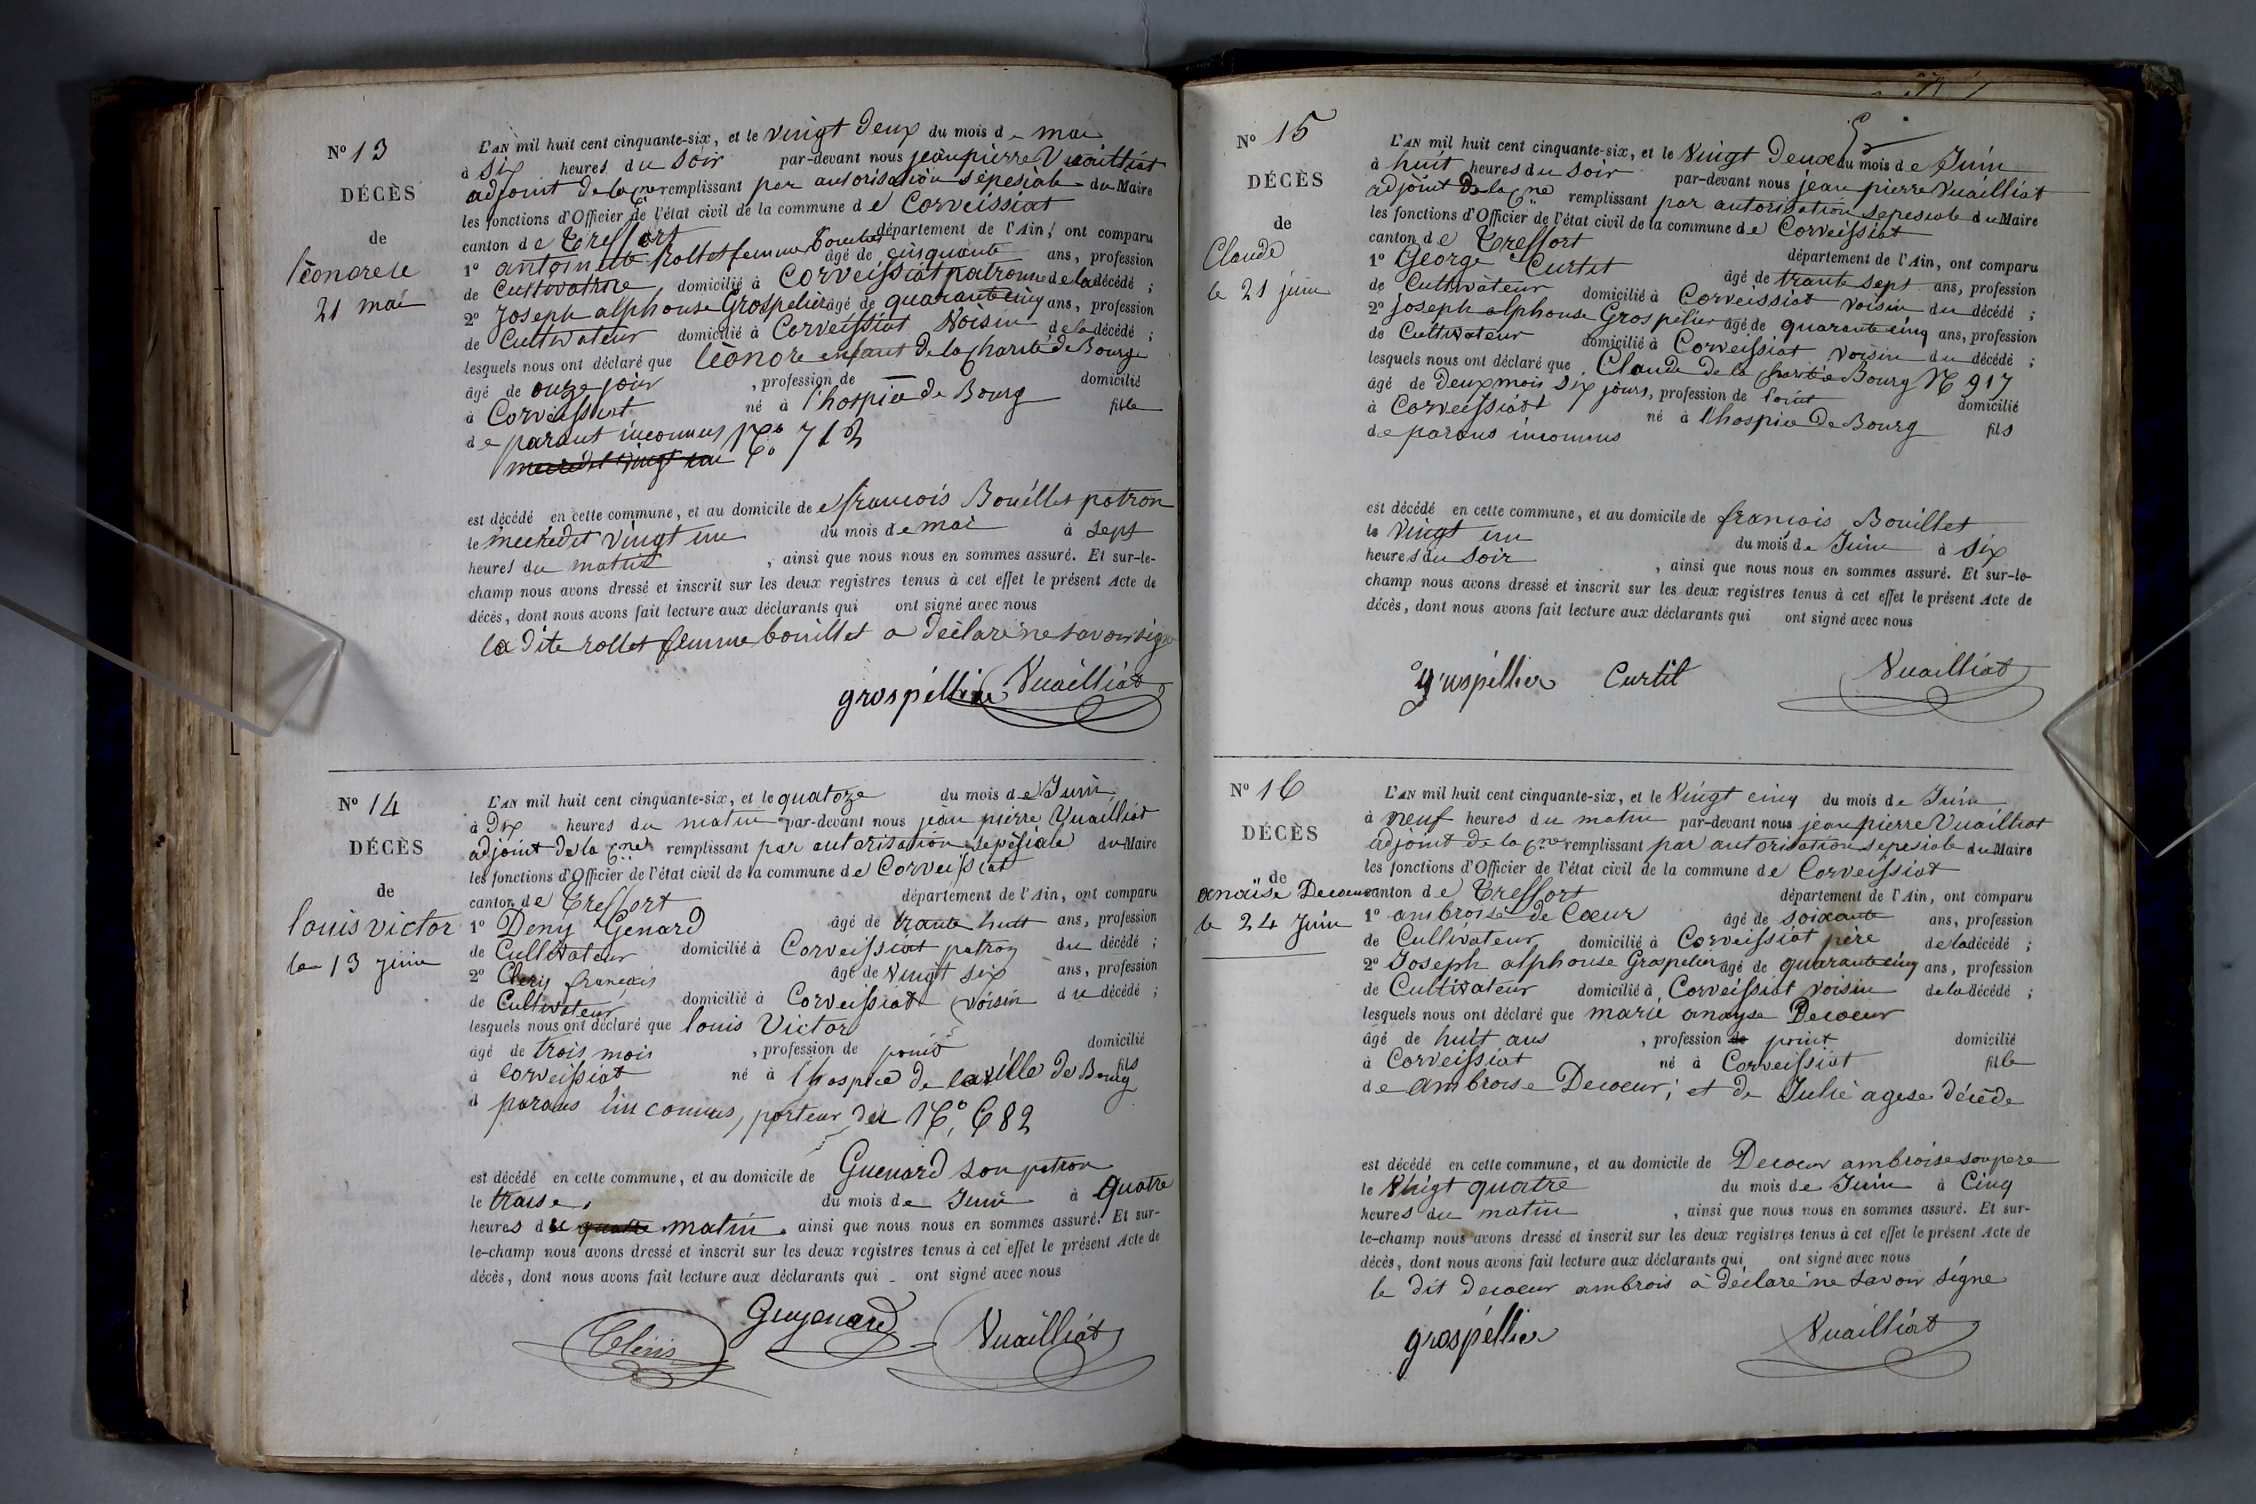 No 13
DÉCÈS
de
léonore le
21 mai
L'AN mil huit cent cinquante-six, et le vingt deux du mois de mai
à six heures du soir par-devant nous jean pierre Vuailliat
adjoint de la Cne remplissant par autorisation sépesiale du Maire
les fonctions d'Officier de l'état civil de la commune de Corveissiat
canton de Treffort département de l'Ain, ont comparu
1o antoinette Rollet femme Bouillet âgé de cinquante ans, profession
de Cultivatrice domicilié à Corveissiat patronne de la décédé ;
2o Joseph alphonse Grospelier âgé de quarante cinq ans, profession
de Cultivateur domicilié à Corveissiat Voisin de la décédé ;
lesquels nous ont déclaré que léonore enfant de la charité de Bourg
âgé de onze jour , profession de — domicilié
à Corveissiat né à l'hospice de Bourg fille
de parant inconnus No 712
mecredit vingt un
est décédé en cette commune, et au domicile de francois Bouillet patron
le mecredit vingt un du mois de mai à sept
heures du matin , ainsi que nous nous en sommes assuré. Et sur-le-
champ nous avons dressé et inscrit sur les deux registres tenus à cet effet le présent Acte de
décès, dont nous avons fait lecture aux déclarants qui ont signé avec nous
la dite rollet femme bouillet a déclaré ne savoir signe
grospéllier Vuailliat
No 14
DÉCÈS
de
louis victor
le 13 juin
L'AN mil huit cent cinquante-six, et le quatoze du mois de Juin
à Dix heures du matin par-devant nous jean pierre Vuailliat
adjoint de la Cne remplissant par autorisation sepésiale du Maire
les fonctions d'Officier de l'état civil de la commune de Corveissiat
canton de Treffort département de l'Ain, ont comparu
1o Deny Genard âgé de trante huit ans, profession
de Cultivateur domicilié à Corveissiat patron du décédé ;
2o Clery francois âgé de vingt six ans, profession
de Cultivateur domicilié à Corveissiat voisin du décédé ;
lesquels nous ont déclaré que louis Victor
âgé de trois mois , profession de point domicilié
à Corveissiat né à l'hospice de la ville de Bourg fils
d parans inconnus, porteur du No 682
est décédé en cette commune, et au domicile de Guenard son patron
le traise du mois de Juin à quatre
heures du quatre matin , ainsi que nous nous en sommes assuré. Et sur-
le-champ nous avons dressé et inscrit sur les deux registres tenus à cet effet le présent Acte de
décès, dont nous avons fait lecture aux déclarants qui ont signé avec nous
Guyenard Vuailliat
No 15
DÉCÈS
de
Claude
le 21 juin
L'AN mil huit cent cinquante-six, et le vingt Deux du mois de Juin
à huit heures du soir par-devant nous jean pierre Vuailliat
adjoint de la Cne remplissant par autorisation sepesiale du Maire
les fonctions d'Officier de l'état civil de la commune de Corveissiat
canton de Treffort département de l'Ain, ont comparu
1o George Curtet âgé de trante sept ans, profession
de Cultivateur domicilié à Corveissiat voisin du décédé ;
2o Joseph alphonse Grospelier âgé de quarante cinq ans, profession
de Cultivateur domicilié à Corveissiat voisin du décédé ;
lesquels nous ont déclaré que Claude de la charité Bourg No 917
âgé de Deux mois six jours, profession de point domicilié
à Corveissiat né à l'hospice de Bourg fils
de parans inconnus
est décédé en cette commune, et au domicile de francois Bouillet
le vingt un du mois de Juin à six
heures du soir , ainsi que nous nous en sommes assuré. Et sur-le-
champ nous avons dressé et inscrit sur les deux registres tenus à cet effet le présent Acte de
décès, dont nous avons fait lecture aux déclarants qui ont signé avec nous
grospéllier Curtil Vuailliat
No 16
DÉCÈS
de
anaïse Decoeur
le 24 Juin
L'AN mil huit cent cinquante-six, et le vingt cinq du mois de Juin
à neuf heures du matin par-devant nous jean pierre Vuailliat
adjoint de la Cne remplissant par autorisation sepesiale du Maire
les fonctions d'Officier de l'état civil de la commune de Corveissiat
canton de Treffort département de l'Ain, ont comparu
1o ambroise de Cœur âgé de soixante ans, profession
de Cultivateur domicilié à Corveissiat père de la décédé ;
2o Joseph alphonse Grospelier âgé de quarante cinq ans, profession
de Cultivateur domicilié à Corveissiat voisin de la décédé ;
lesquels nous ont déclaré que marie anayse Decoeur
âgé de huit ans , profession de point domicilié
à Corveissiat né à Corveissiat fille
de ambroise Decoeur ; et de Julie agese décéde
est décédé en cette commune, et au domicile de Decoeur ambroise son pere
le vingt quatre du mois de Juin à Cinq
heures du matin , ainsi que nous nous en sommes assuré. Et sur-
le-champ nous avons dressé et inscrit sur les deux registres tenus à cet effet le présent Acte de
décès, dont nous avons fait lecture aux déclarants qui ont signé avec nous
le dit decoeur ambrois a déclaré ne savoir signe
grospéllier Vuailliat